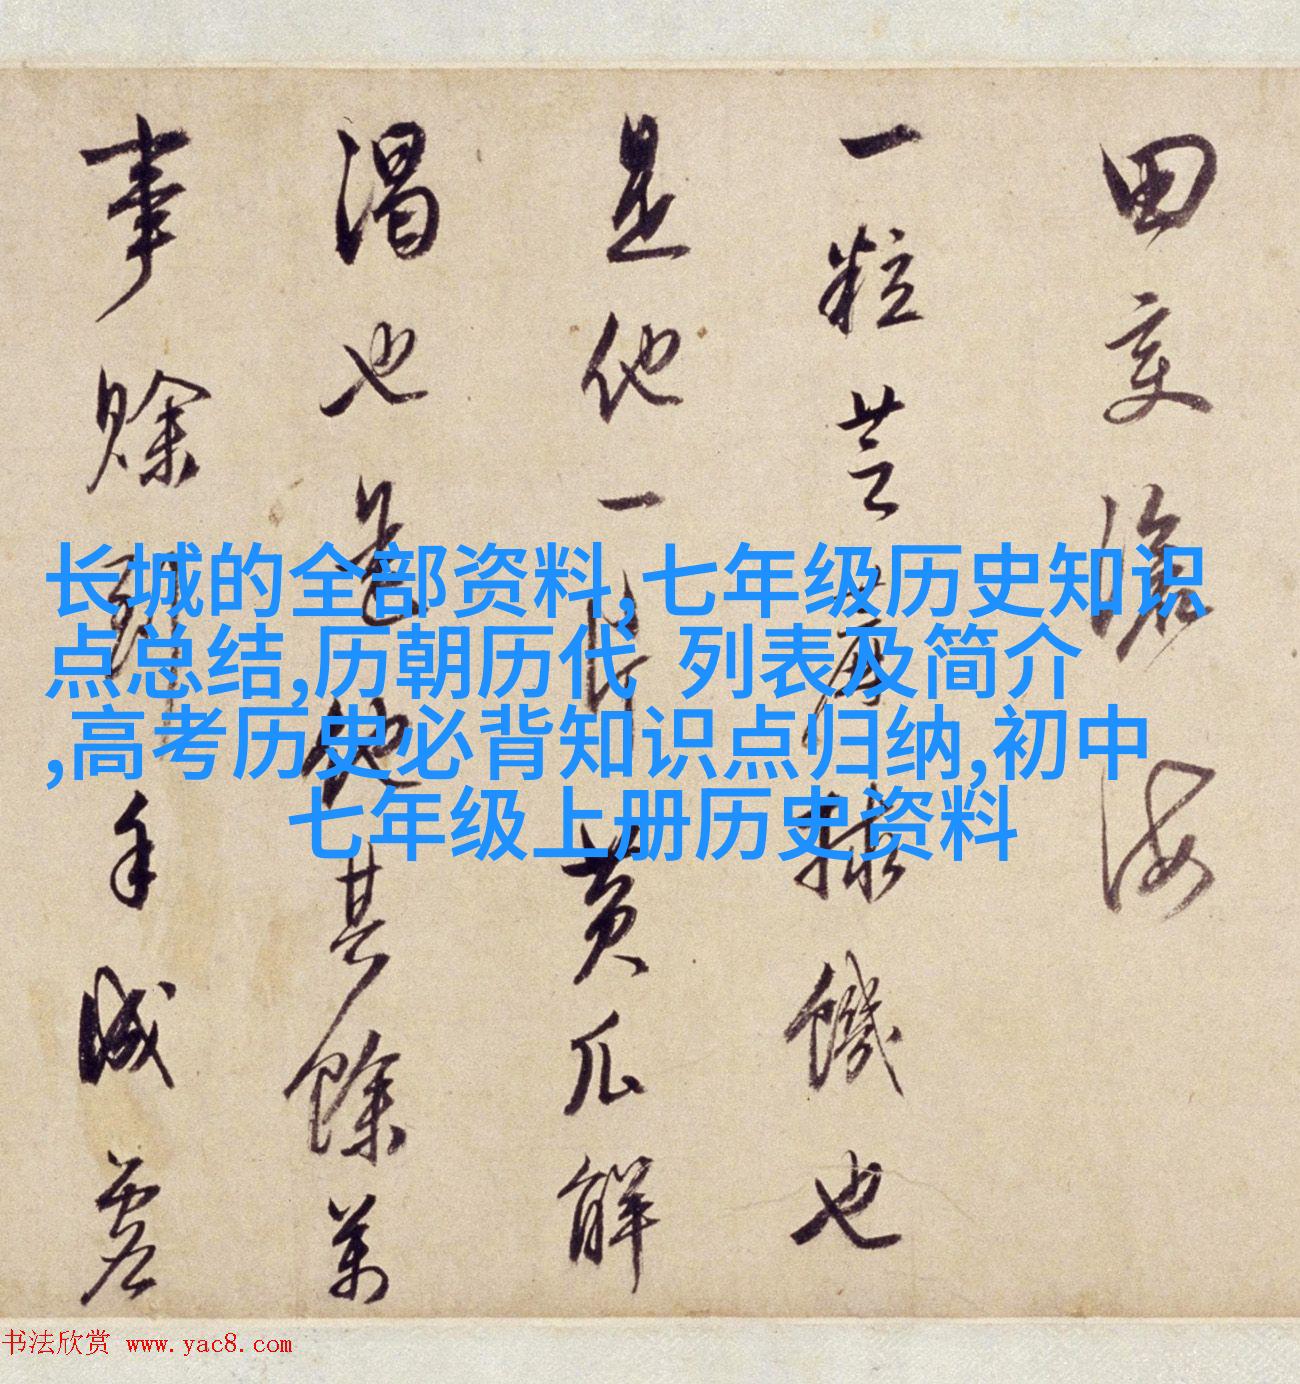 田变滄海
一粒芝麻饑也
是他一片黄瓜解
渴也是他其餘萬
事賒手
长城的全部资料,七年级历史知识
点总结,历朝历代 列表及简介
,高考历史必背知识点归纳,初中
七年级上册历史资料
书法欣赏 www.yac8.com